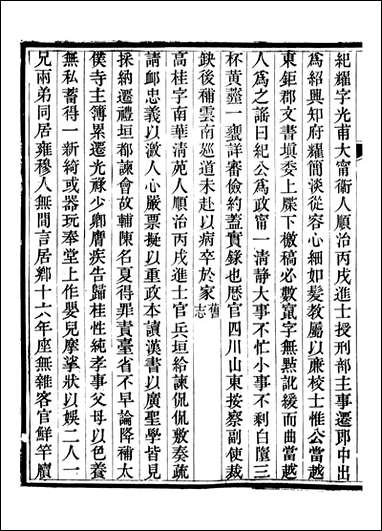 紀耀字光甫大甯衞人順治丙戌進士授刑部主事遷郎中出
爲紹興知府耀簡淡從容心細如髮教屬以廉校士惟公當越
東鉅郡文書塡委上牒下檄稿必數竄字無點訛緩而曲當越
人爲之謡曰紀公爲政甯一清静大事不忙小事不剩白墮三
杯黄虀一甕詳審儉約蓋實錄也歴官四川山東按察副使裁
缺後補雲南廵道未赴以病卒於家舊志
高桂字南華清苑人順治丙戌進士官兵垣給諫侃侃敷奏疏
請䘏忠義以激人心嚴票擬以重政本讀漢書以廣聖學皆見
採納遷禮垣都諫會故輔陳名夏得罪責臺省不早論降補太
僕寺主簿累遷光祿少卿膺疾告歸桂性純孝事父母以色養
無私蓄得一新綺或器玩奉堂上作嬰兒摩挲狀以娛二人一
兄兩弟同居雍穆人無間言居鄉十六年座無雜客官鮮竿牘